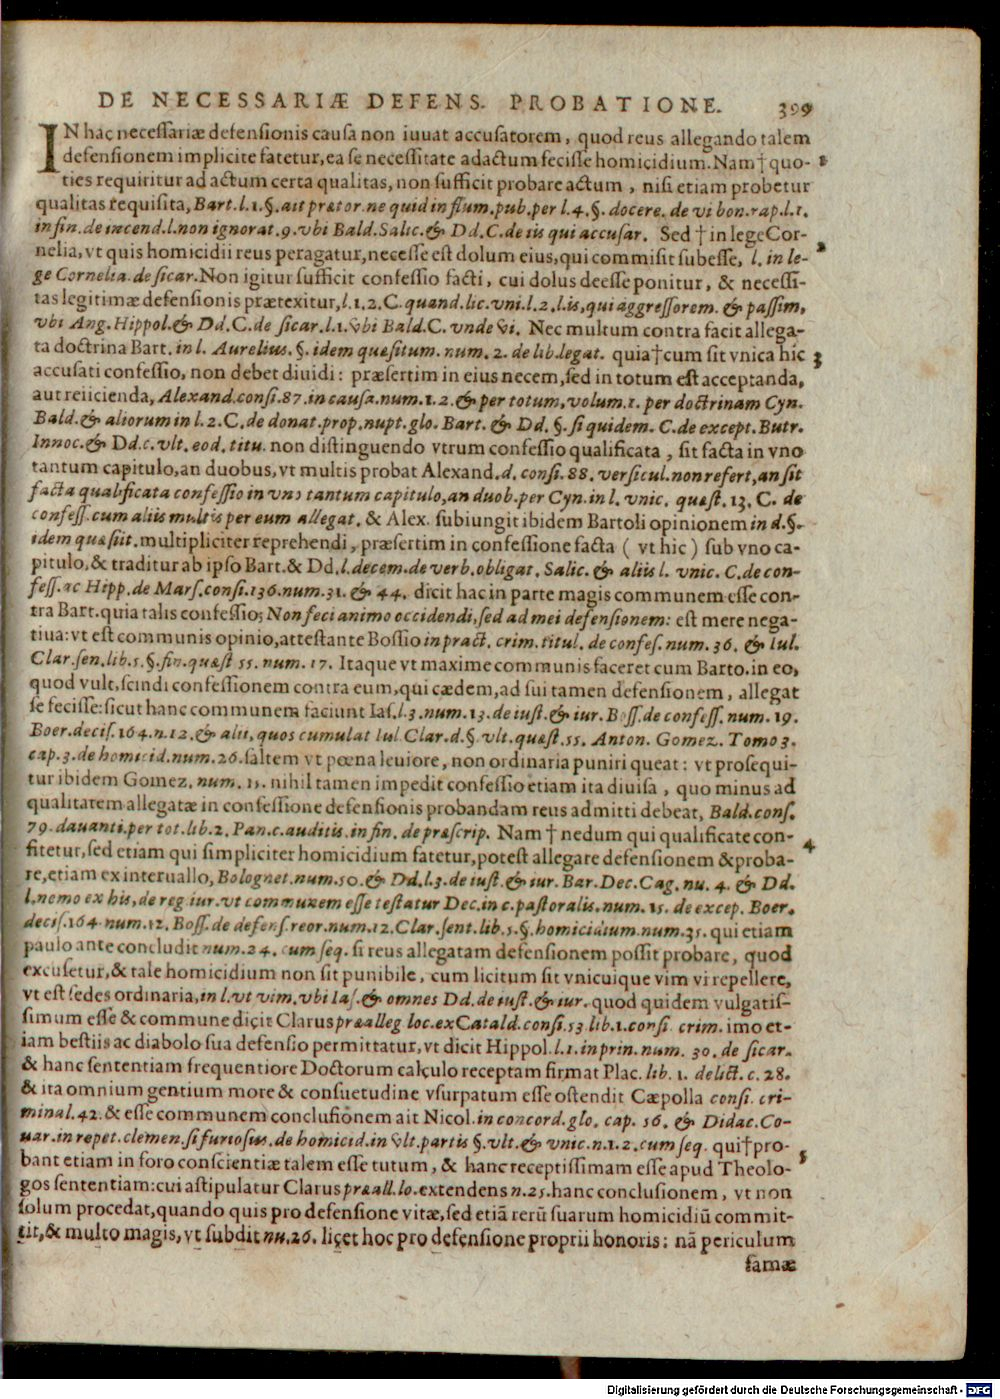 DE NECESSARIÆ DEFENS. PROBATIONE. 399
IN hac necessariæ defensionis causa non iuuat accusatorem, quod reus allegando talem
defensionem implicite fatetur, ea se necessitate adactum fecisse homicidium. Nam † quo-
ties requiritur ad actum certa qualitas, non sufficit probare actum, nisi etiam probetur
qualitas requisita, Bart. l. 1. §. ait prætor. ne quid in flum. pub. per l. 4. §. docere. de vi bon. rap. l. 1.
in fin. de incend. l. non ignorat. 9. vbi Bald. Salic. & Dd. C. de iis qui accusar. Sed † in lege Cor-
2
nelia, vt quis homicidii reus peragatur, necesse est dolum eius, qui commisit subesse, l. in le-
ge Cornelia. de sicar. Non igitur sufficit confessio facti, cui dolus deesse ponitur, & necessi-
tas legitimæ defensionis prætexitur, l. 1. 2. C. quand. lic. vni. l. 2. l. is, qui aggressorem. & passim,
vbi Ang. Hippol. & Dd. C. de sicar. l. 1. vbi Bald. C. vnde vi. Nec multum contra facit allega-
ta doctrina Bart. in l. Aurelius. §. idem quæsitum. num. 2. de lib. legat. quia † cum sit vnica hic
3
accusati confessio, non debet diuidi: præsertim in eius necem, sed in totum est acceptanda,
aut reiicienda, Alexand. consi. 87. in causa. num. 1. 2. & per totum, volum. 1. per doctrinam Cyn.
Bald. & aliorum in l. 2. C. de donat. prop. nupt. glo. Bart. & Dd. §. si quidem. C. de except. Butr.
Innoc. & Dd. c. vlt. eod. titu. non distinguendo vtrum confessio qualificata, sit facta in vno
tantum capitulo, an duobus, vt multis probat Alexand. d. consi. 88. versicul. non refert, an sit
facta qualificata confessio in vno tantum capitulo, an duob. per Cyn. in l. vnic. quæst. 13. C. de
confess. cum aliis multis per eum allegat. & Alex. subiungit ibidem Bartoli opinionem in d. §.
idem quæsiit. multipliciter reprehendi, præsertim in confessione facta ( vt hic ) sub vno ca-
pitulo, & traditur ab ipso Bart. & Dd. l. decem. de verb. obligat. Salic. & aliis l. vnic. C. de con-
fess. ac Hipp. de Mars. consi. 136. num. 31. & 44. dicit hac in parte magis communem esse con-
tra Bart. quia talis confessio; Non feci animo occidendi, sed ad mei defensionem: est mere nega-
tiua: vt est communis opinio, attestante Bossio in pract. crim. titul. de confes. num. 36. & Iul.
Clar. sen. lib. 5. §. fin. quæst 55. num. 17. Itaque vt maxime communis faceret cum Barto. in eo,
quod vult, scindi confessionem contra eum, qui cædem, ad sui tamen defensionem, allegat
se fecisse: sicut hanc communem faciunt Ias. l. 3. num. 13. de iust. & iur. Boss. de confess. num. 19.
Boer. decis. 164. n. 12. & alii, quos cumulat Iul Clar. d. §. vlt. quæst. 55. Anton. Gomez. Tomo 3.
cap. 3. de homicid. num. 26. saltem vt pœna leuiore, non ordinaria puniri queat: vt prosequi-
tur ibidem Gomez. num. 15. nihil tamen impedit confessio etiam ita diuisa, quo minus ad
qualitatem allegatæ in confessione defensionis probandam reus admitti debeat, Bald. cons.
79. dauanti. per tot. lib. 2. Pan. c. auditis. in fin. de præscrip. Nam † nedum qui qualificate con-
4
fitetur, sed etiam qui simpliciter homicidium fatetur, potest allegare defensionem & proba-
re, etiam ex interuallo, Bolognet. num. 50. & Dd. l. 3. de iust. & iur. Bar. Dec. Cag. nu. 4. & Dd.
l. nemo ex his, de reg iur. vt communem esse testatur Dec. in c. pastoralis. num. 15. de excep. Boer.
decis. 164. num. 12. Boss. de defens. reor. num. 12. Clar. sent. lib. 5. §. homicidium. num. 35. qui etiam
paulo ante concludit num. 24. cum seq. si reus allegatam defensionem possit probare, quod
excusetur, & tale homicidium non sit punibile, cum licitum sit vnicuique vim vi repellere,
vt est sedes ordinaria, in l. vt vim. vbi Ias. & omnes Dd. de iust. & iur. quod quidem vulgatis-
simum esse & commune dicit Clarus præalleg loc. ex Catald. consi. 53 lib. 1. consi. crim. imo et-
iam bestiis ac diabolo sua defensio permittatur, vt dicit Hippol. l. 1. in prin. num. 30. de sicar.
& hanc sententiam frequentiore Doctorum calculo receptam firmat Plac. lib. 1. delict. c. 28.
& ita omnium gentium more & consuetudine vsurpatum esse ostendit Cæpolla consi. cri-
minal. 42. & esse communem conclusionem ait Nicol. in concord. glo. cap. 56. & Didac. Co-
uar. in repet. clemen. si furiosus. de homicid. in vlt. partis §. vlt. & vnic. n. 1. 2. cum seq. qui † pro-
5
bant etiam in foro conscientiæ talem esse tutum, & hanc receptissimam esse apud Theolo-
gos sententiam: cui astipulatur Clarus præall. lo. extendens n. 25. hanc conclusionem, vt non
solum procedat, quando quis pro defensione vitæ, sed etiã rerũ suarum homicidiũ commit-
tit, & multo magis, vt subdit nu. 26. licet hoc pro defensione proprii honoris: nã periculum
famæ
Digitalisierung gefördert durch die Deutsche Forschungsgemeinschaft - DFG